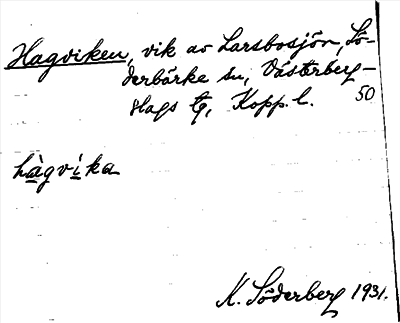 Hagviken, vik av Larsbosjön, Sö-
derbärke sn, Västerberg-
slags tg, Kopp. l. 50
hàgvìka
K. Söderberg 1931.